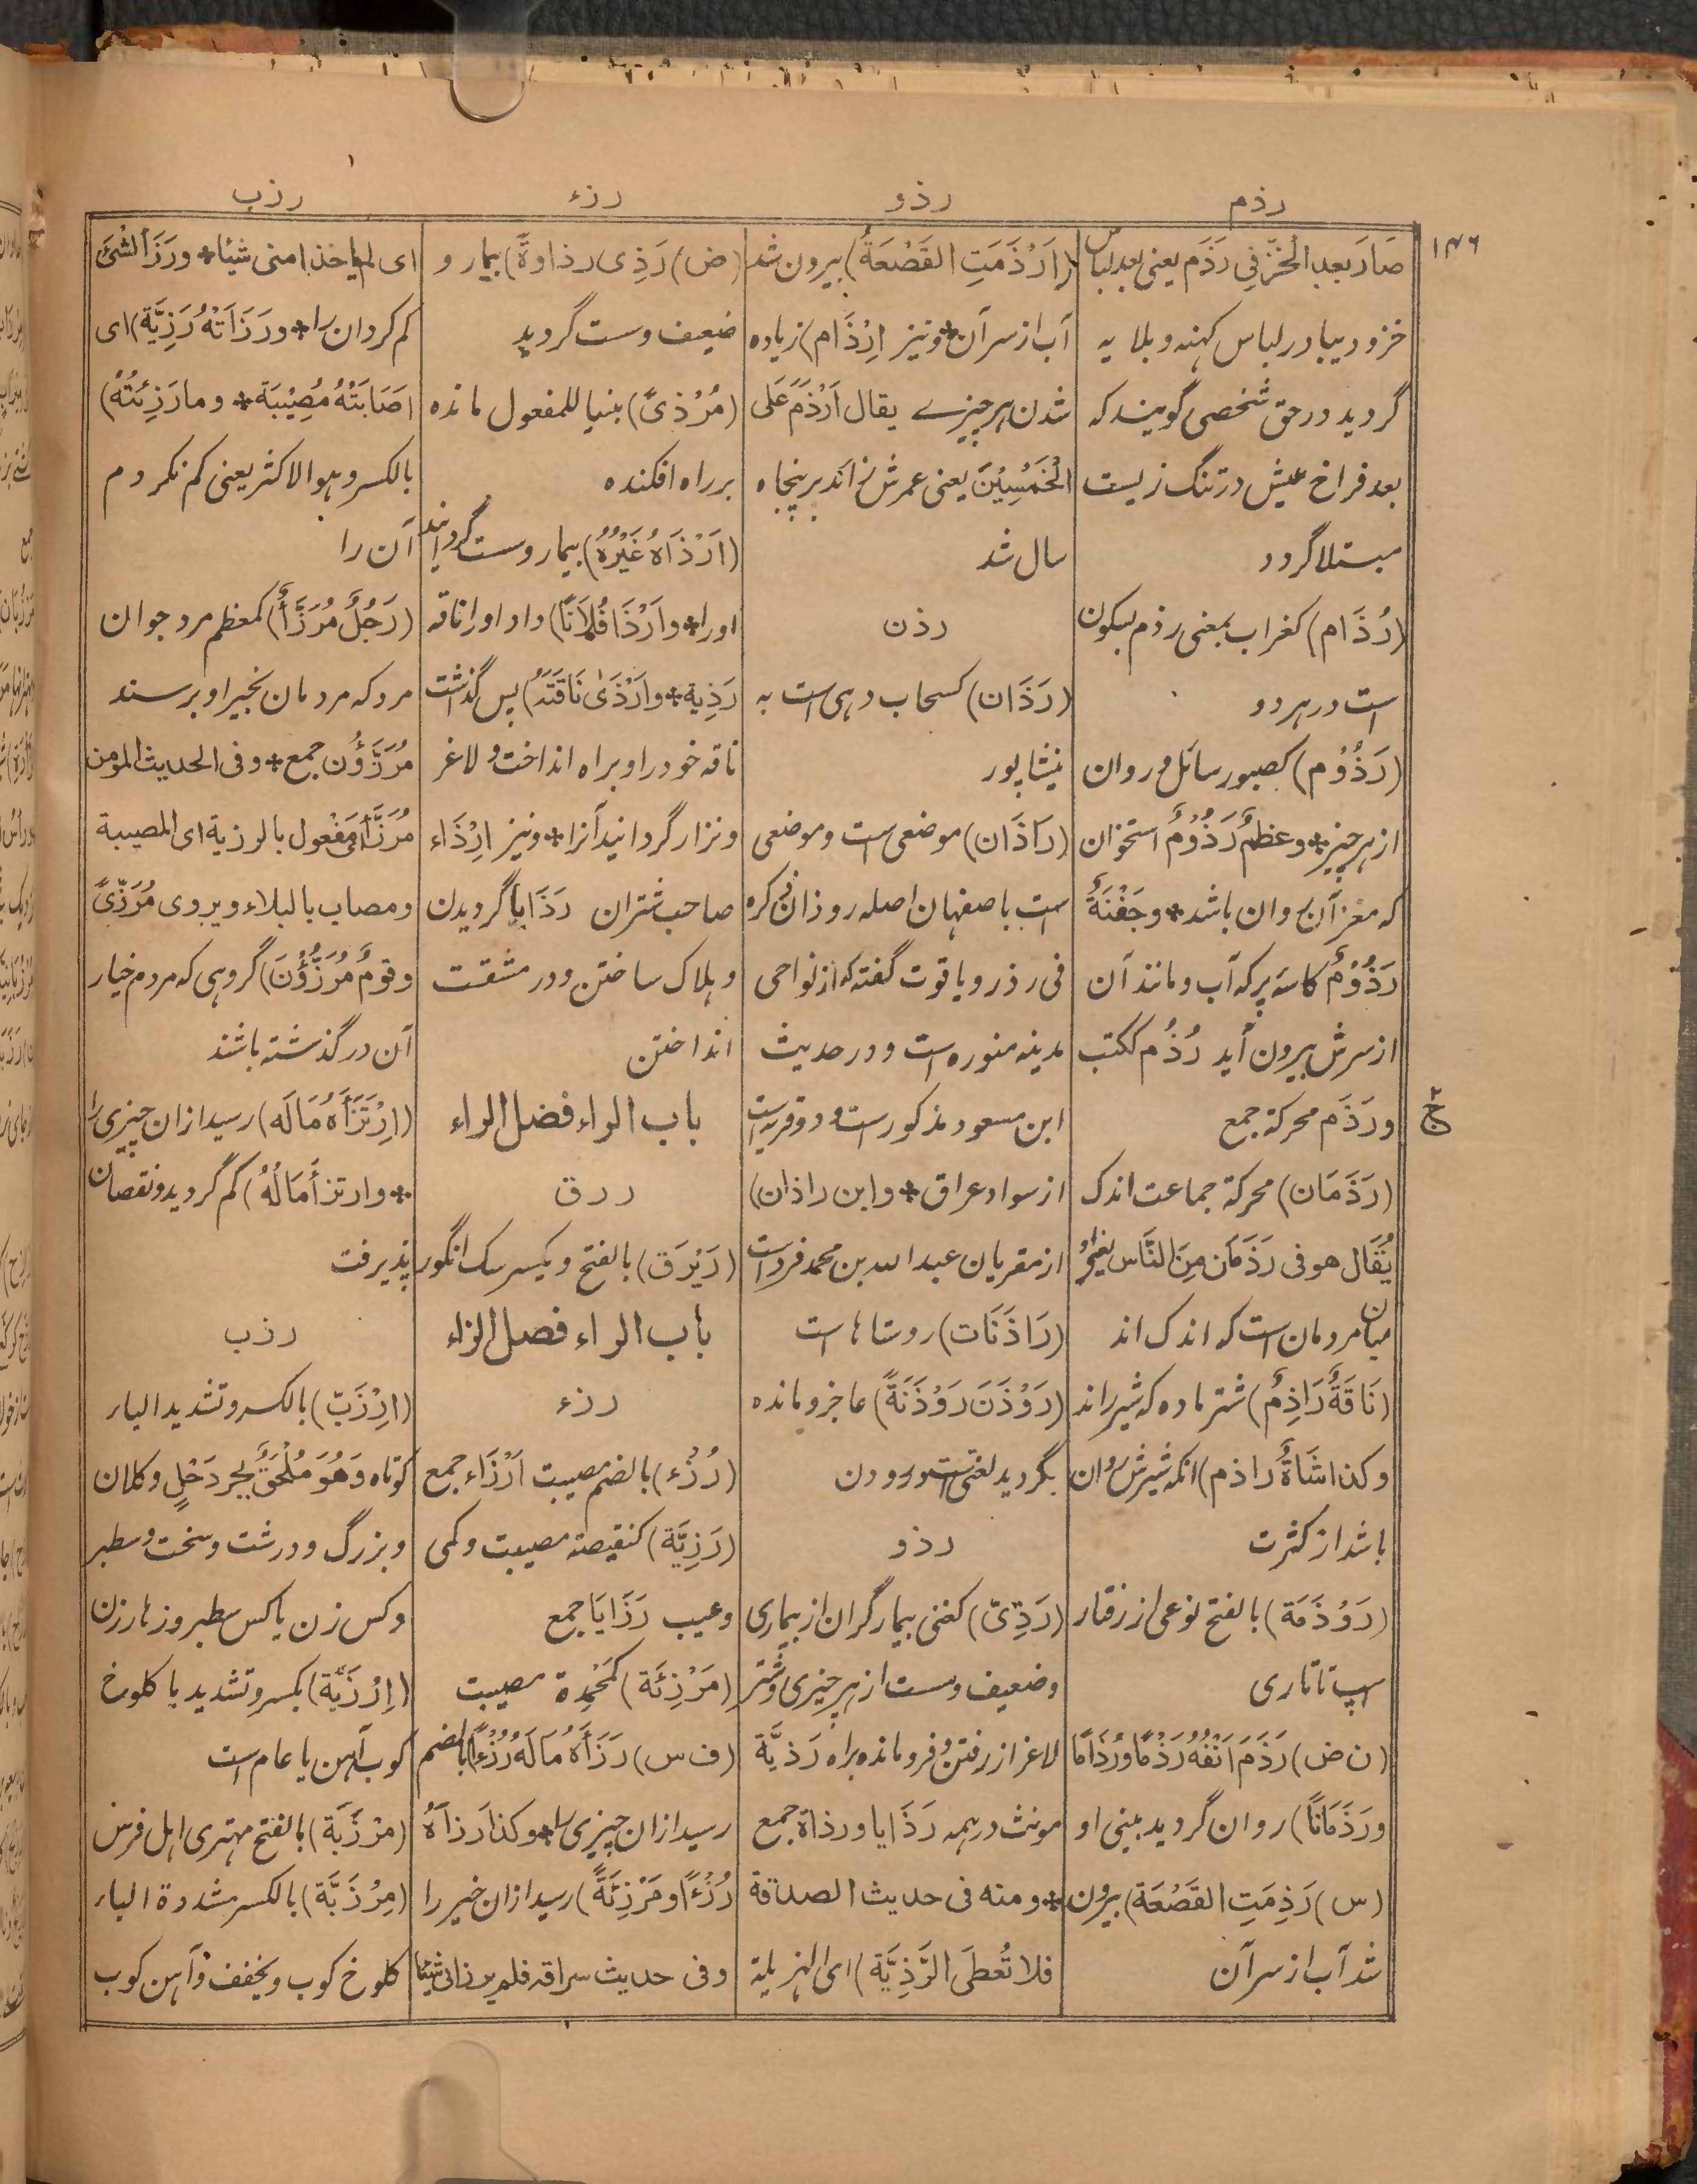 رذم
رذو
رزء
رزب
١٣٦
صَارَ بعد الخَزِّ فِی رَذَم یعنی بعد لباس
خز و دیبا در لباس کهنه و بلایه
گردید در حق شخصی گویند که
بعد فراخ عیش در تنگ زیست
مبتلا گردد
(رُذَام) کغراب بمعنی رذم بسکون
است در هر دو
(رَذُوْم) کصبور سائل و روان
از هر چیز * وعظمٌ رَذُوْمٌ استخوان
که مغز آن روان باشد * وجَفْنَةٌ
رَذُوْمٌ کاسه پر که آب و مانند آن
از سرش بیرون آید رُذُم ککتب
ورَذَم محرکة جمع
ج
(رَذَمَان) محرکة جماعت اندک
یُقَال هو فی رَذَمَان مِنَ النَّاس یعنی او
میان مردمان است که اندک اند
(نَاقَةٌ رَاذِمٌ) شتر ماده که شیر راند
وکذا شَاةٌ راذم) انکه شیرش روان
باشد از کثرت
(رَوْذَمَة) بالفتح نوعی از رفتار
اسپ تاتاری
(ن ض) رَذَمَ اَنْفُهُ رَذْمًا ورُذَامًا
ورَذَمَانًا) روان گردید بینی او
(س) رَذِمَتِ القَصْعَة) بیرون
شد آب از سر آن
(اَرْذَمَتِ القَصْعَةُ) بیرون شد
آب از سر آن * ونیز اِرْذَام) زیاده
شدن هر چیزے یقال اَرْذَمَ عَلَی
الْخَمْسِیْنَ یعنی عمرش زاند بر پنجاه
سال شد
رذن
(رَذَان) کسحاب دهی است به
نیشاپور
(رَاذَان) موضعی است و موضعی
است باصفهان اصله روذان ذکره
فی رذر و یاقوت گفته که از نواحی
مدینه منوره است و در حدیث
ابن مسعود مذکور است و دو قریه است
از سواد عراق * وابن راذان)
از مقریان عبد الله بن محمد فرد است
(رَاذَنَات) روستاها است
(رَوْذَنَ رَوْذَنَةً) عاجز و مانده
بگردید لغتی است در رودن
رذو
(رَذِیّ) کغنی بیمار گران از بیماری
وضعیف و سست از هر چیزی و شتر
لاغر از رفتن و فرومانده براه رَذیَّة
مونث در همه رَذَایا ورذاة جمع
* ومنه فی حدیث الصدقة
فلا تُعطَی الرَّذِیَّة) ای الهزیلة
(ض) رَذِی رذاوةً) بیمار و
ضعیف و سست گردید
(مُرْذیً) بنیا للمفعول مانده
بر راه افکنده
(اَرْذَاهُ غَیْرُهُ) بیمار و سست گردانید
او را * واَرْذَا فُلَانًا) داد او را ناقه
رَذِیة * واَرْذَیٰ نَاقَتَهُ) پس گذاشت
ناقه خود را و براه انداخت و لاغر
و نزار گردانید آنرا * ونیز اِرْذَاء
صاحب شتران رَذَایا گردیدن
و هلاک ساختن و در مشقت
انداختن
باب الراء فضل الراء
ررق
(رَیْرَق) بالفتح و یکسر سک انگور
باب الراء فصل الزاء
رزء
(رُزْء) بالضم مصیبت اَرْزَاء جمع
(رَزِیَّة) کنقیصة مصیبت و کمی
وعیب رَزَایَا جمع
(مَرْزِئَة) کَمَحْمِدة مصیبت
(ف س) رَزَأَهُ مَالَهُ رُزْءًا بالضم
رسید از ان چیزی را * وکذا رَزأَهُ
رُزْءًا ومَرْزِئَةً) رسید از ان خیر را
وفی حدیث سراقه فلم یرزانی شیئا
ای لم یاخذا منی شیئا * ورَزَأ الشئَ
کم کرد ان را * ورَزَأَتْهُ رَزِیَّة) ای
اَصَابَتْهُ مُصِیْبَة * وما رَزِئتُهُ)
بالکسر وهو الاکثر یعنی کم نکردم
آن را
(رَجُلٌ مُرَزَّأٌ) کمعظم مرد جوان
مرد که مردمان بخیر او برسند
مُرَزَّؤُن جمع * وفی الحدیث المؤمن
مُرَزَّأ ای مَفْعول بالرزیة ای المصیبة
ومصاب بالبلاء ویروی مُرَزّیً
وقومٌ مُرَزَّؤُنَ) گروهی که مردم خیار
آن درگذشته باشند
(اِرْتَزَأَهُ مَالَه) رسید از ان چیزی را
* وارتزأَ مَالُهُ) کم گردید و نقصان
پذیرفت
رذب
(اِرْزَبّ) بالکسر و تشدید الباء
کوتاه وَهُوَ مُلْحَقٌ بِجِردَحْلٍ و کلان
و بزرگ و درشت و سخت و سطبر
و کس زن یا کس سطبر و زهار زن
(اِرْزَبَّة) بکسر و تشدید با کلوخ
کوب آهن یا عام است
(مَرْزَبَة) بالفتح مهتری اهل فرس
(مِرْزَبَّة) بالکسر مشددة الباء
کلوخ کوب ویخفف و آهن کوب